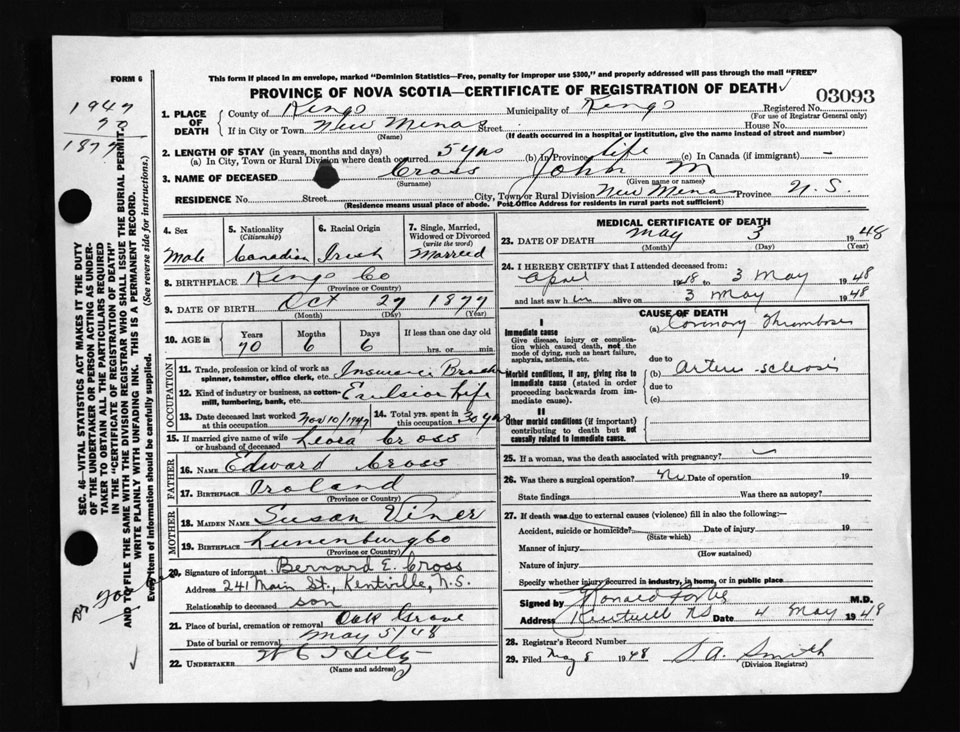 FORM 6
This form if placed in an envelope, marked "Dominion Statistics—Free, penalty for improper use $300," and properly addressed will pass through the mail "FREE"
PROVINCE OF NOVA SCOTIA—CERTIFICATE OF REGISTRATION OF DEATH
03093
1947
70
1877
1. PLACE OF DEATH
County of Kings Municipality of Kings Registered No.
(For use of Registrar General only)
If in City or Town New Minas Street House No.
(Name) (If death occurred in a hospital or institution, give the name instead of street and number)
2. LENGTH OF STAY (in years, months and days)
(a) In City, Town or Rural Division where death occurred 5 yrs (b) In Province life (c) In Canada (if immigrant) —
3. NAME OF DECEASED Cross John M
(Surname) (Given name or names)
RESIDENCE No. Street City, Town or Rural Division New Minas Province N.S.
(Residence means usual place of abode. Post Office Address for residents in rural parts not sufficient)
4. Sex Male
5. Nationality (Citizenship) Canadian
6. Racial Origin Irish
7. Single, Married, Widowed or Divorced (write the word) Married
8. BIRTHPLACE Kings Co
(Province or Country)
9. DATE OF BIRTH Oct 27 1877
(Month) (Day) (Year)
10. AGE in Years 70 Months 6 Days 6 If less than one day old hrs. or min.
OCCUPATION
11. Trade, profession or kind of work as spinner, teamster, office clerk, etc. Insurance
12. Kind of industry or business, as cotton-mill, lumbering, bank, etc. Life
13. Date deceased last worked at this occupation Nov 10/1947
14. Total yrs. spent in this occupation 30 yrs
15. If married give name of wife or husband of deceased Leora Cross
FATHER
16. NAME Edward Cross
17. BIRTHPLACE
(Province or Country)
MOTHER
18. MAIDEN NAME Susan Viner
19. BIRTHPLACE Lunenburg Co
(Province or Country)
20. Signature of informant Bernard E. Cross
Address 241 Main St., Kentville, N.S.
Relationship to deceased son
21. Place of burial, cremation or removal Oak Grove
Date of burial or removal May 5/48
22. UNDERTAKER W C Hiltz
(Name and address)
MEDICAL CERTIFICATE OF DEATH
23. DATE OF DEATH May 3 1948
(Month) (Day) (Year)
24. I HEREBY CERTIFY that I attended deceased from:
April 18 to 3 May 1948
and last saw him alive on 3 May 1948
CAUSE OF DEATH
I
Immediate cause
Give disease, injury or complication which caused death, not the mode of dying, such as heart failure, asphyxia, asthenia, etc.
(a) Coronary Thrombosis
due to
Morbid conditions, if any, giving rise to immediate cause (stated in order proceeding backwards from immediate cause).
(b) Arterio-sclerosis
due to
(c)
II
Other morbid conditions (if important) contributing to death but not causally related to immediate cause.
25. If a woman, was the death associated with pregnancy?
26. Was there a surgical operation? No Date of operation 19
State findings Was there an autopsy?
27. If death was due to external causes (violence) fill in also the following:—
Accident, suicide or homicide? Date of injury 19
(State which)
Manner of injury
(How sustained)
Nature of injury
Specify whether injury occurred in industry, in home, or in public place
Signed by Ronald Forbes M.D.
Address Kentville NS Date 4 May 1948
28. Registrar's Record Number
29. Filed May 8 1948 S.A. Smith
(Division Registrar)
SEC. 46—VITAL STATISTICS ACT MAKES IT THE DUTY OF THE UNDERTAKER OR PERSON ACTING AS UNDERTAKER TO OBTAIN ALL THE PARTICULARS REQUIRED IN THE "CERTIFICATE OF REGISTRATION OF DEATH" AND TO FILE THE SAME WITH THE DIVISION REGISTRAR WHO SHALL ISSUE THE BURIAL PERMIT.
WRITE PLAINLY WITH UNFADING INK. THIS IS A PERMANENT RECORD.
Every item of information should be carefully supplied. (See reverse side for instructions.)